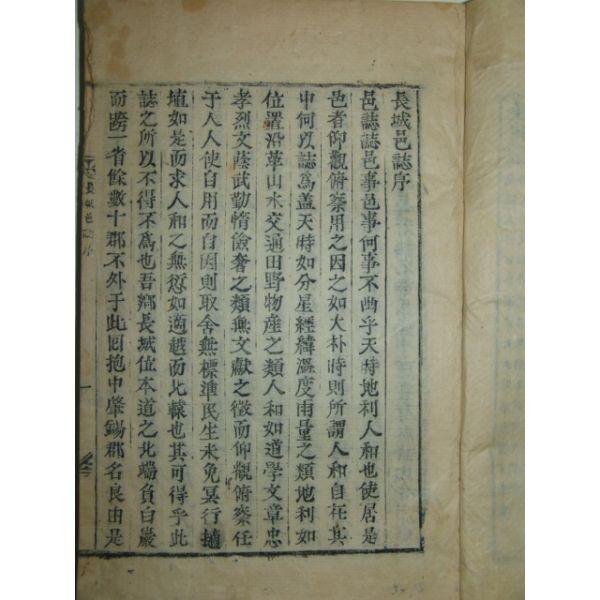 長城邑誌序
邑誌誌邑事邑事何事不西乎天時地利人和也使居是
邑者仰觀俯察用之因之如大朴時則所謂人和自在其
中何以誌爲盖天時如分星經緯溫度雨量之類地利如
位置沿革山水交通田野物產之類人和如道學文章忠
孝烈文蔭武勤惰儉奢之類無文獻之徵而仰觀俯察任
于人人使自用而自因則取舍無標準民生未免冥行擿
埴如是而求人和之無愆如適越而北轅也其可得乎此
誌之所以不得不爲也吾鄕長城位本道之北端負白巖
而跨一省餘數十郡不外于此回抱中肇錫郡名良由是
長城邑誌序
一